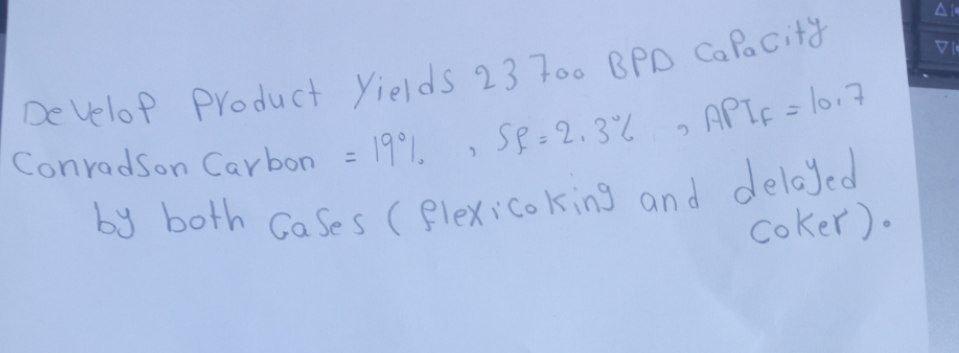 Develop Product Yields 23700 BPD Capacity
Conradson Carbon = 19% , Sf = 2.3% , APIF = 10.7
by both Cases ( flexicoking and delayed
coker).